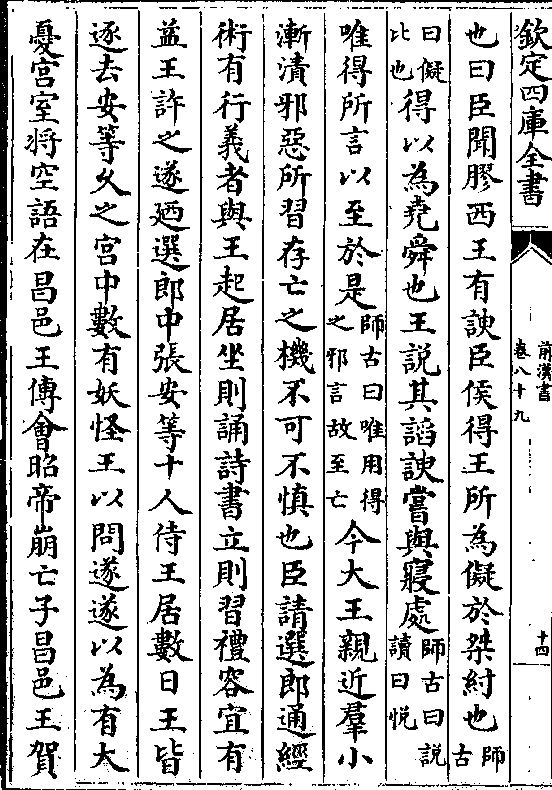 欽定四庫全書
前漢書
卷八十九
十四
也曰臣聞膠西王有諛臣侯得王所為儗於桀紂也師古
曰儗比也得以為堯舜也王説其諂諛嘗與寢處師古曰説讀曰悅
唯得所言以至於是師古曰唯用得之邪言故至亡今大王親近羣小
漸漬邪惡所習存亡之機不可不慎也臣請選郎通經
術有行義者與王起居坐則誦詩書立則習禮容宜有
益王許之遂廼選郎中張安等十人侍王居數日王皆
逐去安等乆之宫中數有妖怪王以問遂遂以為有大
憂宫室将空語在昌邑王傳會昭帝崩亡子昌邑王賀